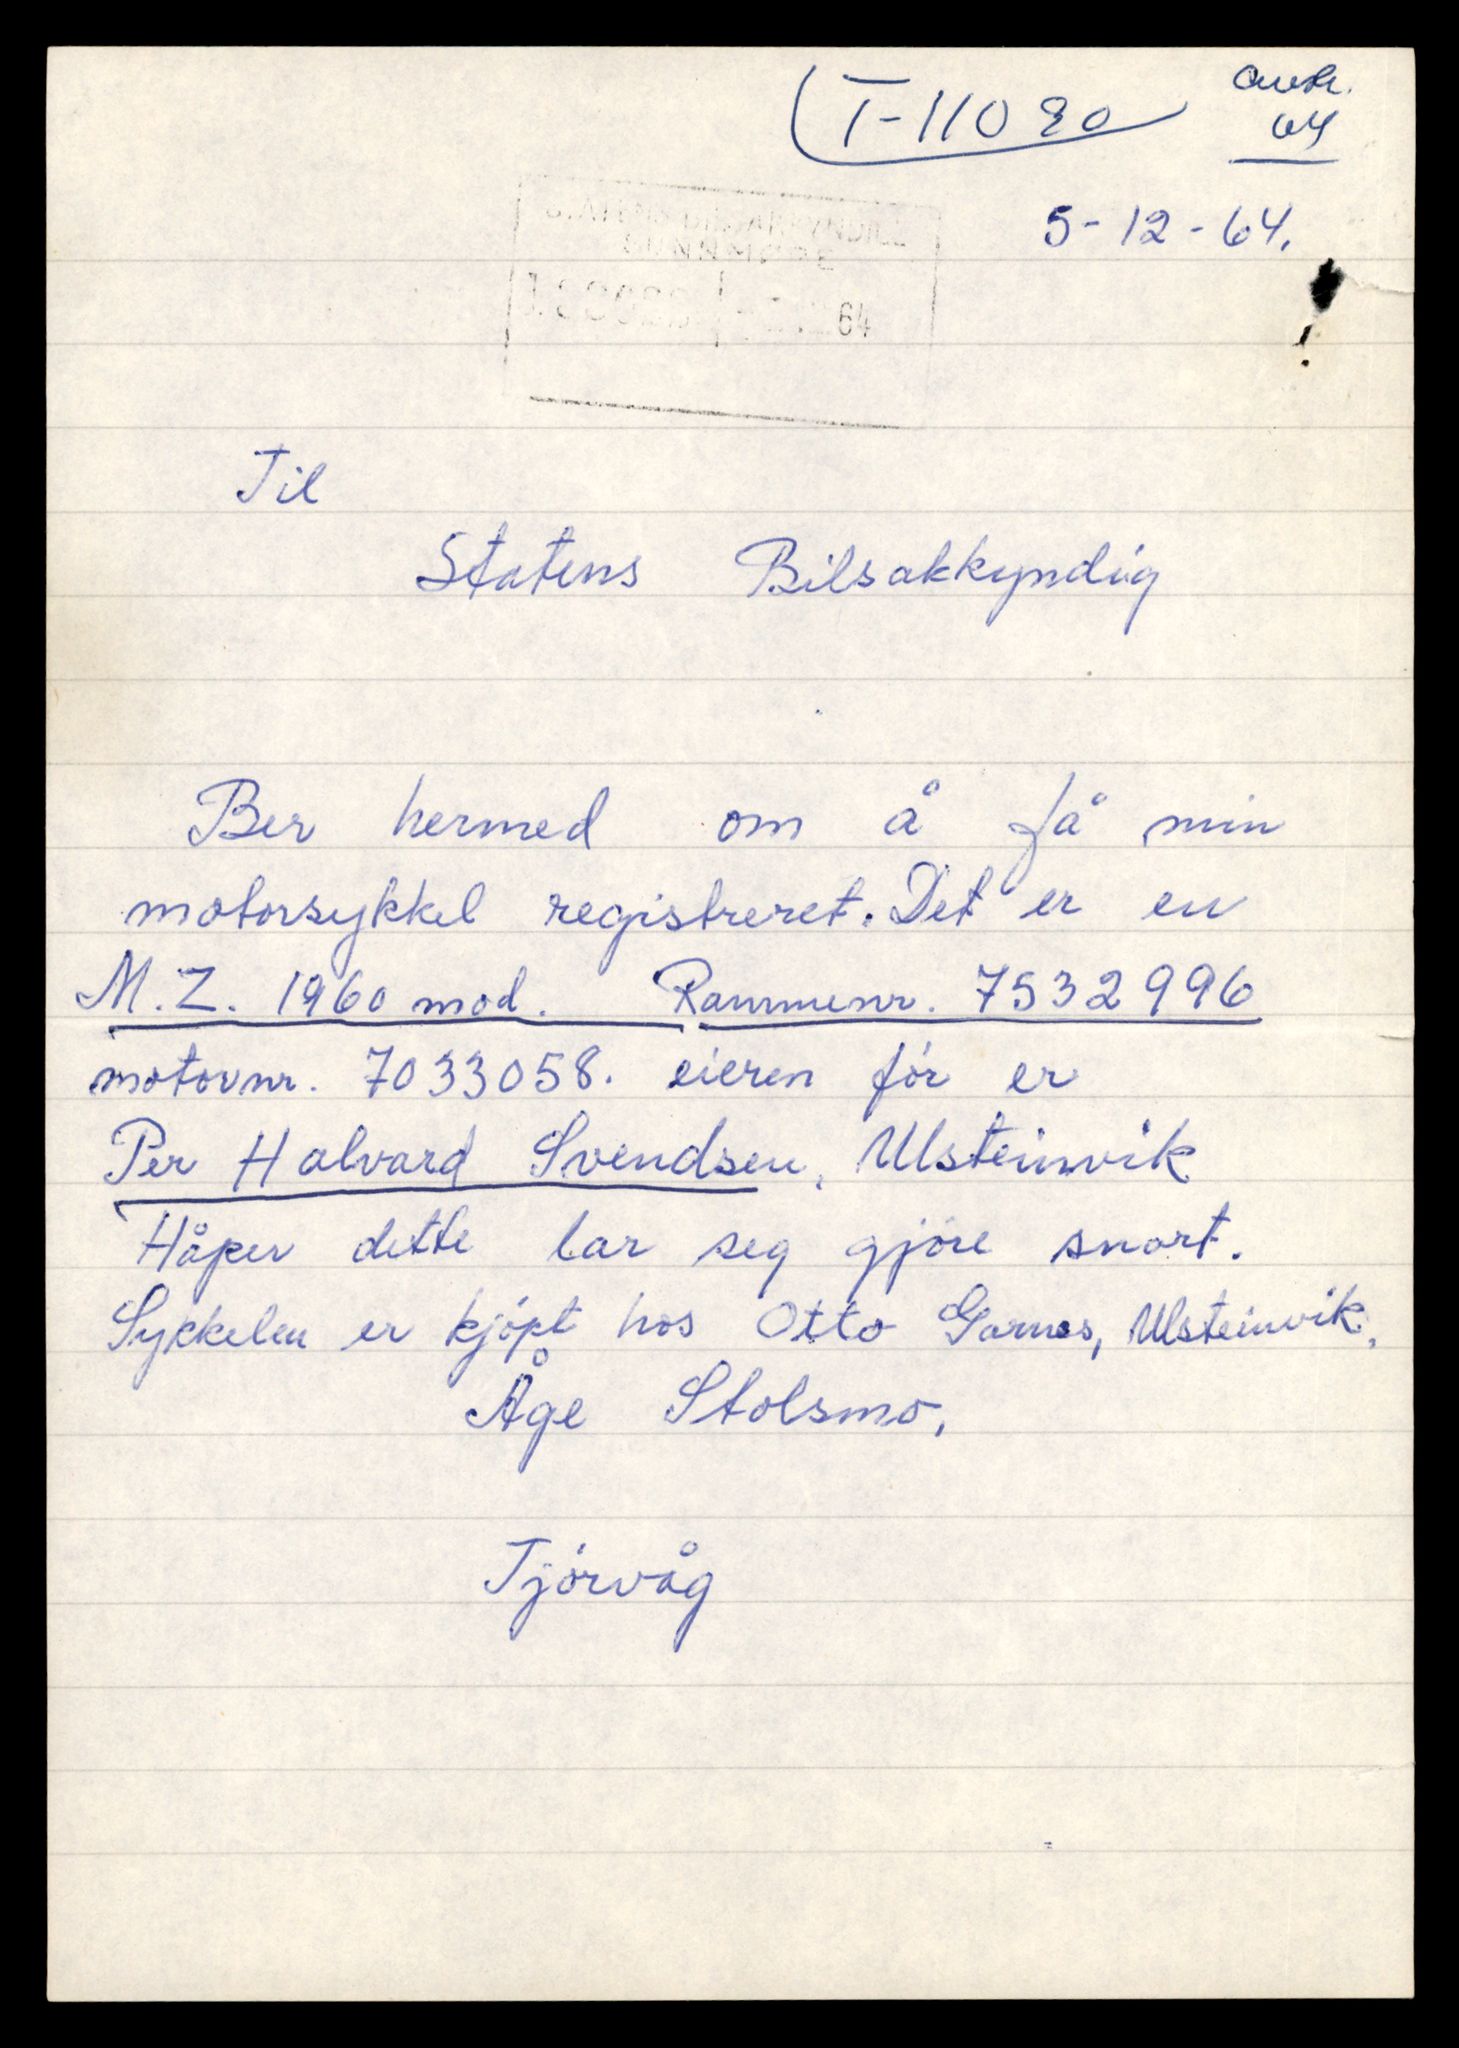 T-11080
64
5-12-64.
64
Til
Statens Bilsakkyndig
Ber hermed om å få min
motorsykkel registreret. Det er en
M.Z. 1960 mod. Rammenr. 7532996
motornr. 7033058. eieren før er
Per Halvard Svendsen, Ulsteinvik
Håper dette lar seg gjøre snart.
Sykkelen er kjøpt hos Otto Garnes, Ulsteinvik.
Åge Stolsmo,
Tjørvåg